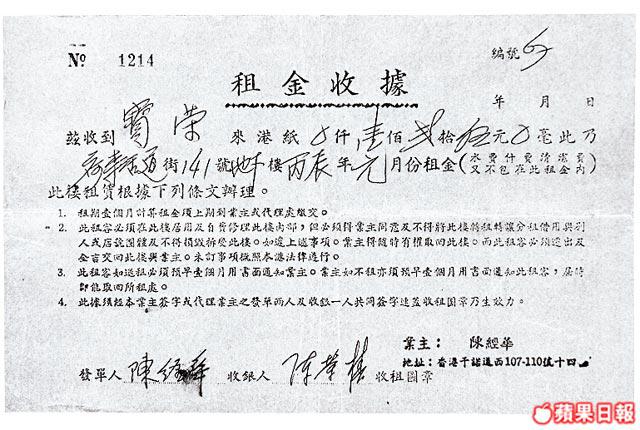 № 1214
編號
租金收據
年 月 日
茲收到 寶 荣 來港紙 0 仟 壹 佰 貳 拾 伍 元 0 毫此乃
街 141 號 地下 樓 丙辰 年 元 月份租金(水費什費清潔費又不包在此租金內)
此樓租賃根據下列條文辦理。
1. 租期壹個月計算租金須上期到業主或代理處繳交。
2. 此租客必須在此樓居用及自費修理此樓內部,但必須得業主同意及不得將此樓轉租轉讓分租借用與別
人或店號團體及不得損毀拆斃此樓。如違上述事項。業主得隨時有權取回此樓。而此租客必須遷出及
全吉交回此樓與業主。未訂事項概照本港法律進行。
3. 此租客如退租必須預早壹個月用書面通知業主。業主如不租亦須預早壹個月用書面通知此租客,屆時
即能取回所租處。
4. 此據須經本業主簽字或代理業主之發單兩人及收銀一人共同簽字連蓋收租圖章乃生效力。
業主: 陳經華
地址:香港干諾道西107-110號十四
發單人 陳經華 收銀人 陈荣 收租圖章
蘋果日報